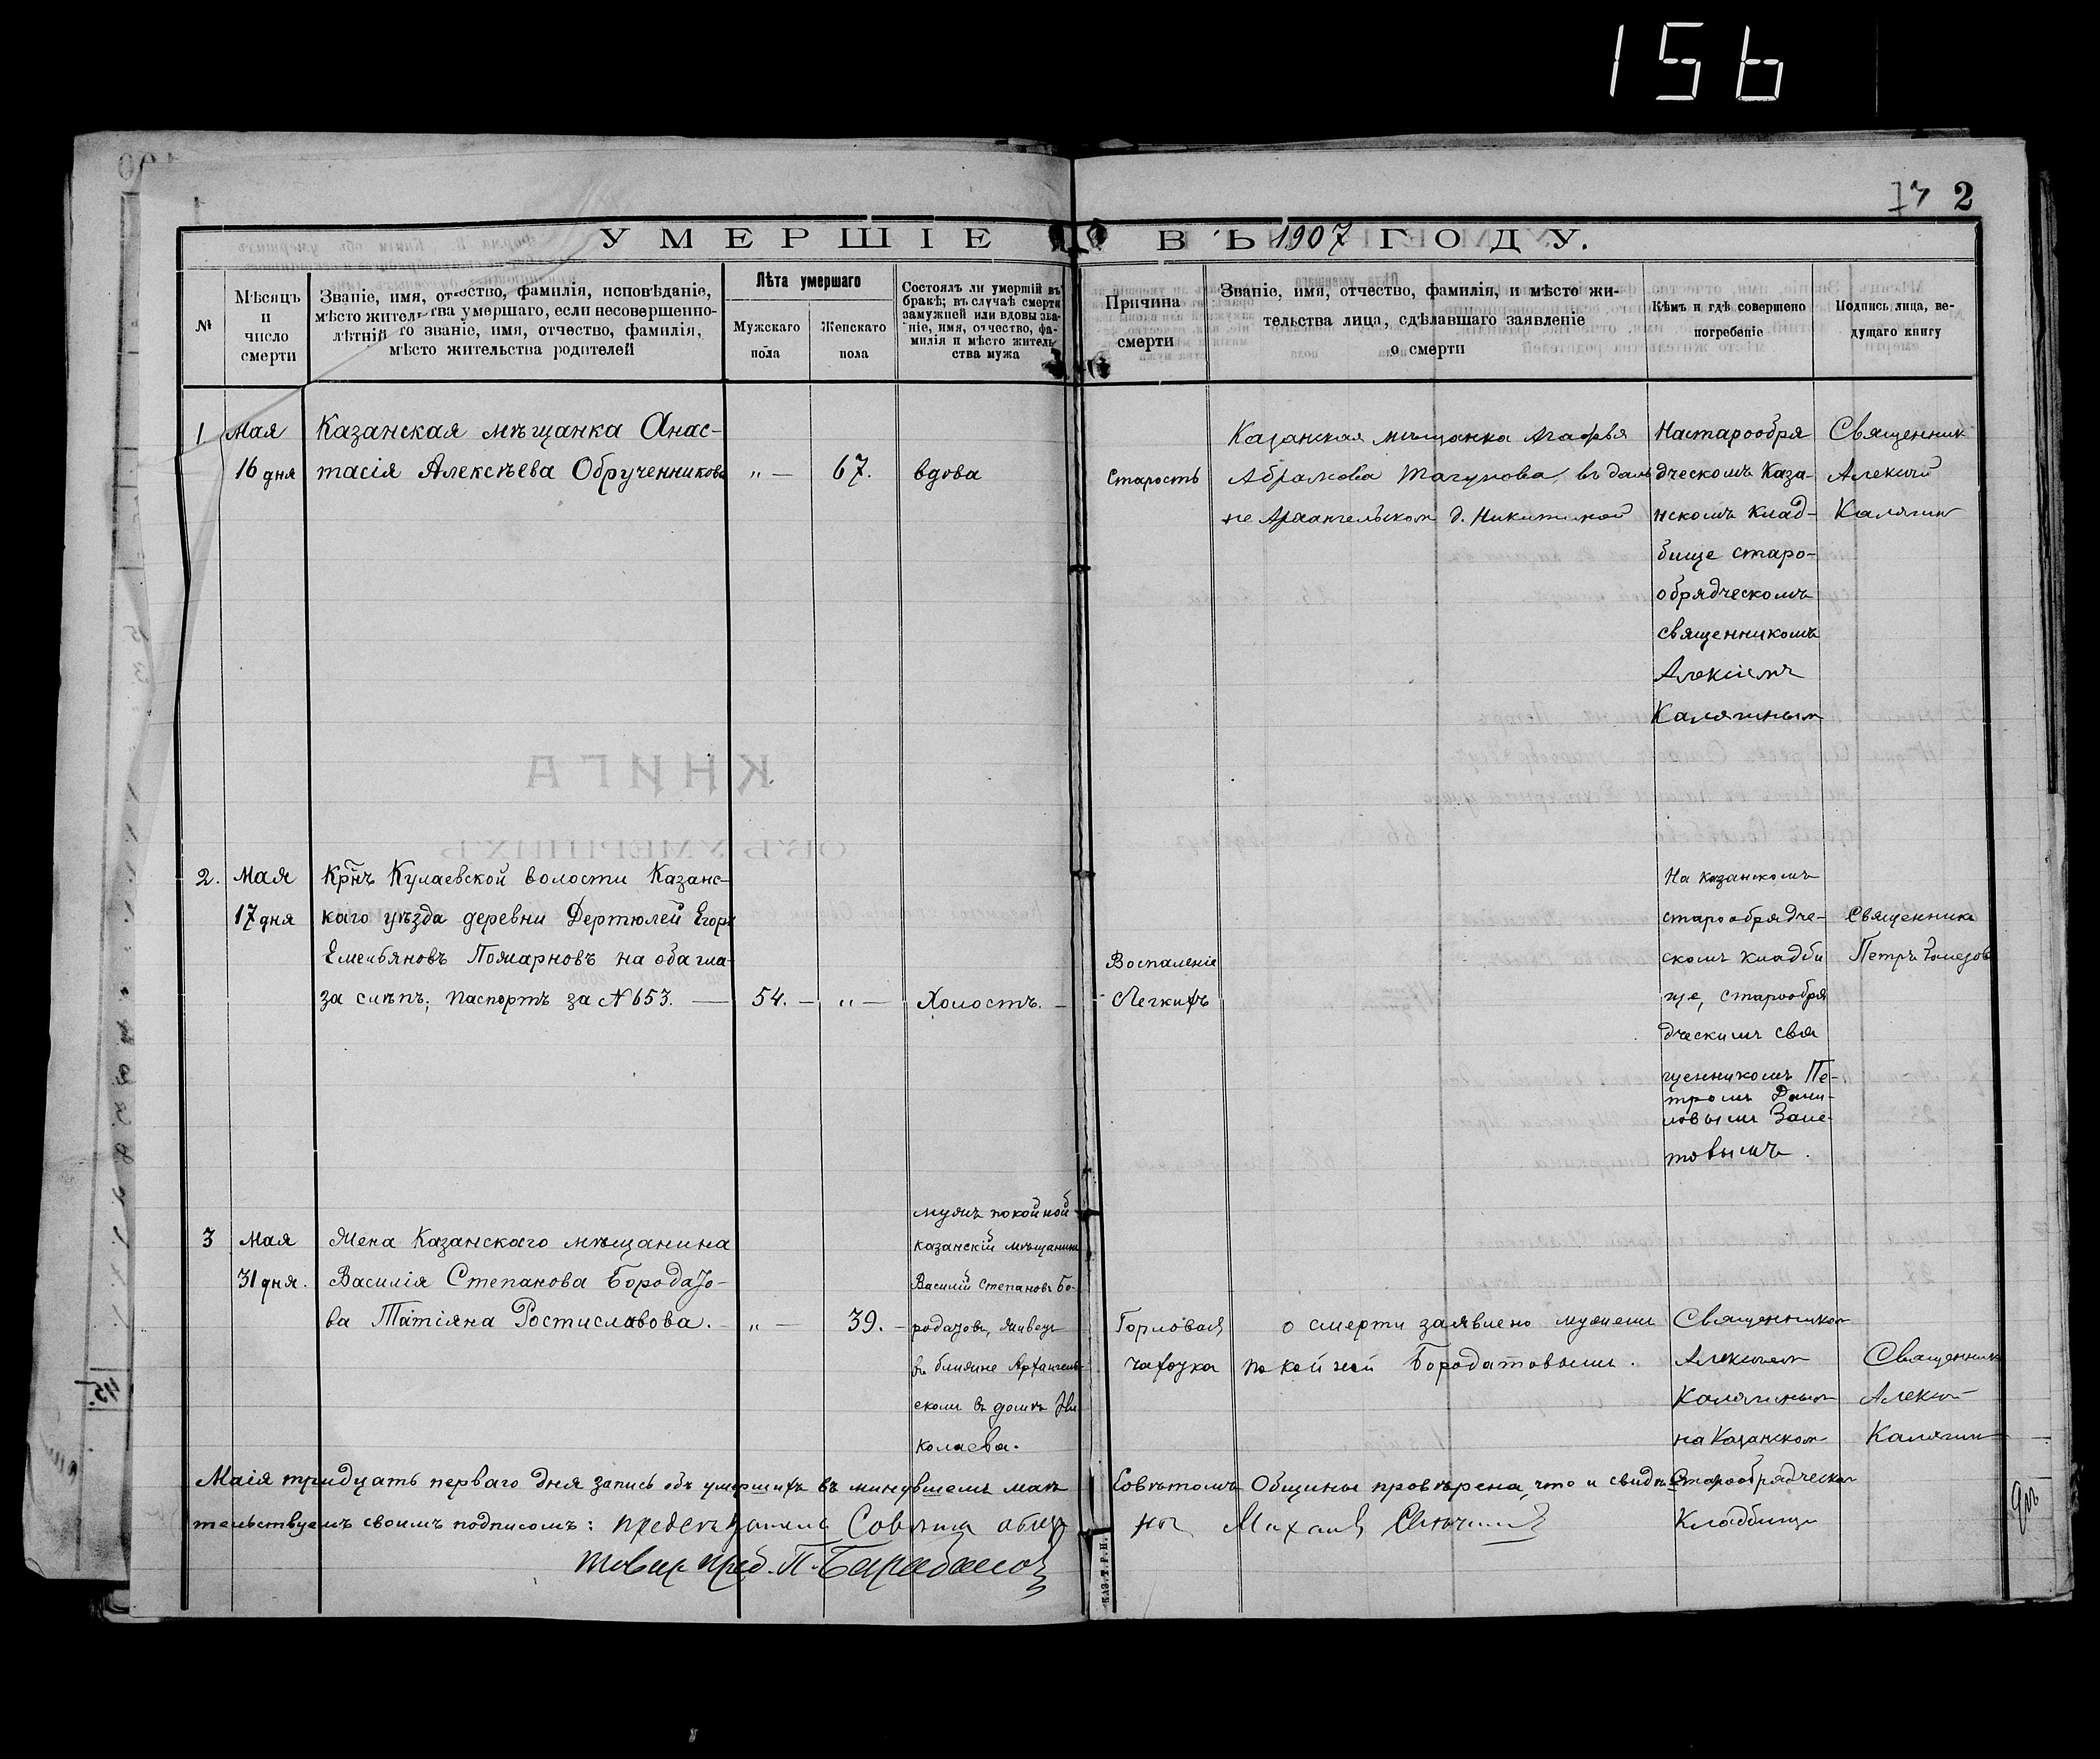 156
2
УМЕРШІЕ ВЪ 1907 ГОДУ.
№
Мѣсяцъ
и
число
смерти
Званіе, имя, отчество, фамилія, исповѣданіе,
мѣсто жительства умершаго, если несовершенно-
лѣтній то званіе, имя, отчество, фамилія,
мѣсто жительства родителей
Лѣта умершаго
Мужскаго
пола
Женскаго
пола
Состоялъ ли умершій въ
бракѣ; въ случаѣ смерти
замужней или вдовы зва-
ніе, имя, отчество, фа-
милія и мѣсто житель-
ства мужа
Причина
смерти
Званіе, имя, отчество, фамилія, и мѣсто жи-
тельства лица, сдѣлавшаго заявленіе
о смерти
Кѣмъ и гдѣ совершено
погребеніе
Подпись лица, ве-
дущаго книгу
1
Мая
16 дня
Казанская мѣщанка Анас-
тасія Алексѣева Обрученникова
„ —
67.
вдова
Старость
Казанская мѣщанка Агафья
Абрамова въ дал
не Архангельском д. Никитиной
На старообря
дческомъ Каза-
нскомъ клад-
бище старо-
обрядческомъ
священникомъ
Алексіемъ
Калягиным
Священник
Алексій
Калягин
2.
Мая
17 дня
Крнъ Кулаевской волости Казанс-
каго уѣзда деревни Дертюлей Егоръ
Емельяновъ Пожарновъ на оба гла-
за слѣпъ; паспортъ за № 653. —
54. —
„ —
Холостъ. —
Воспаленіе
Легкихъ
На казанскомъ
старообрядче-
скомъ кладби
ще, старообря
дческимъ свя
щенникомъ Пе-
тромъ Дани-
ловымъ Зале-
товымъ.
Священникъ
Петръ Залетов
3
Мая
31 дня.
Жена Казанскаго мѣщанина
Василія Степанова Бородато-
ва Татіяна Ростиславова. —
„ —
39. —
мужъ покойной
казанскій мѣщанинъ
Василій Степановъ Бо-
родатовъ, живетъ
въ ближне Архангель-
скомъ въ домѣ Ни
колаева.
Горловая
чахотка
о смерти заявлено мужемъ
покойной Бородатовымъ.
Священником
Алексіем
Калягиным
на Казанском
Старообрядческом
Кладбище
Священник
Алексій
Калягин
Маія тридцать перваго дня запись объ умершихъ въ минувшемъ маѣ Совѣтомъ Общины провѣрена, что и свидѣ-
тельствуемъ своимъ подписомъ: председатель Совѣта общи ны Михаил
Товар. пред. П. Барабанов
КАЗ. Т. Г. П.
КНИГА
ОБЪ УМЕРШИХЪ